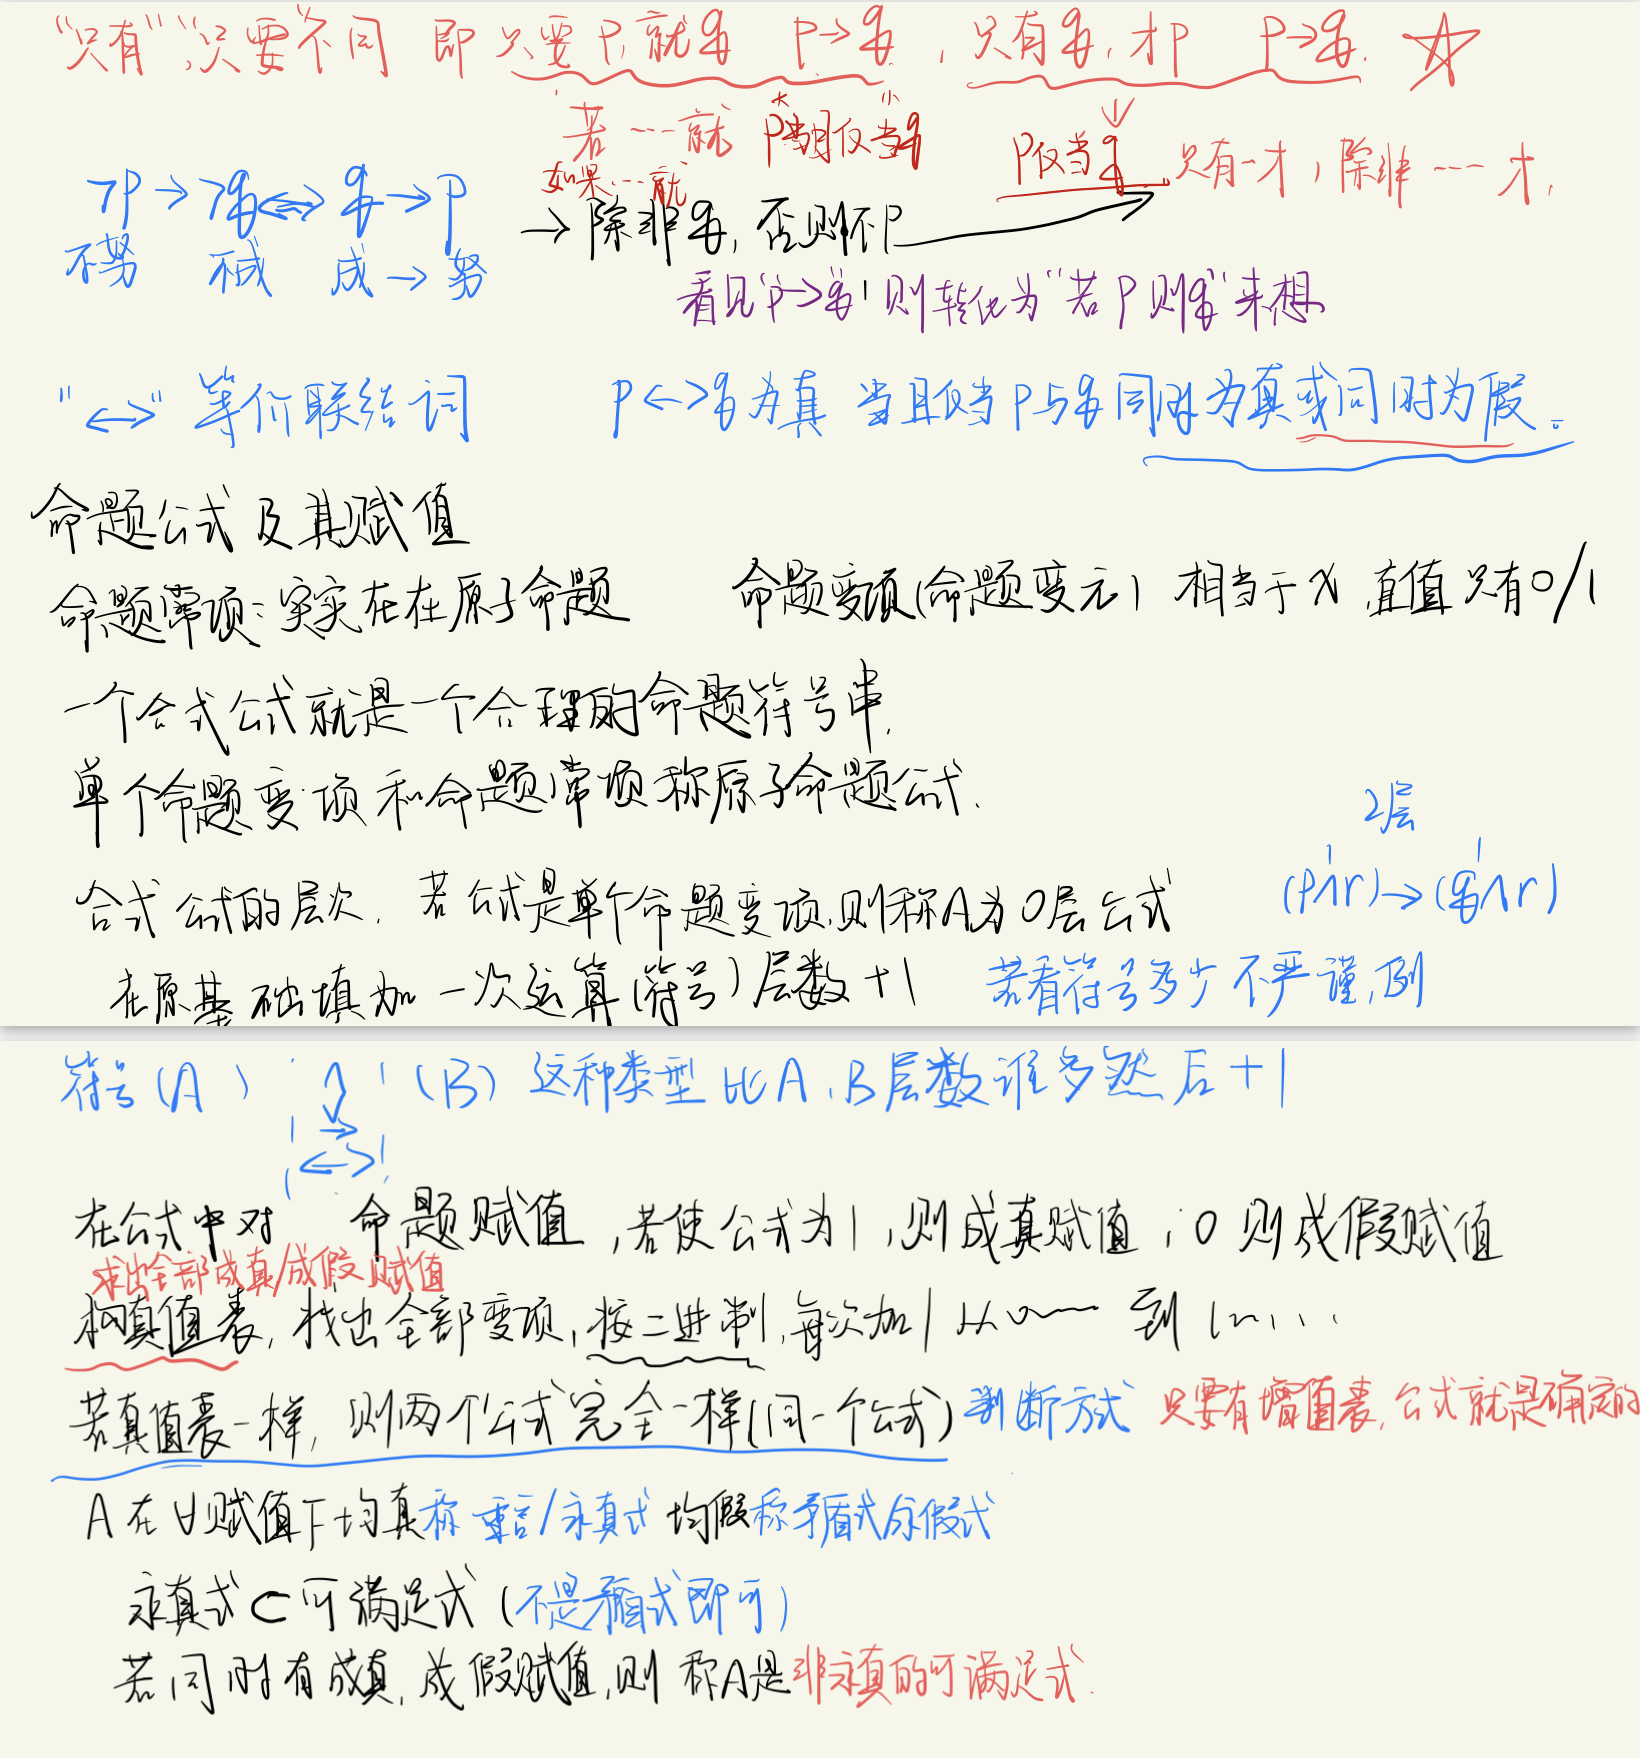 “只有”“只要”不同 即 只要P,就q P→q ,只有q,才P P→q. ☆
若……就 P当仅当q
如果…就
P仅当q 只有一才,除非……才,
大 小
¬P→¬q⟷q→P
不努 不成 成→努
→除非q,否则不P
看见“P→q”则转化为“若P则q”来想
“<->”等价联结词 P<->q为真 当且仅当P与q同时为真或同时为假。
命题公式及其赋值
命题常项:实实在在原子命题 命题变项(命题变元) 相当于x,真值只有0/1
一个合式公式就是一个合理的命题符号串.
单个命题变项和命题常项称原子命题公式.
2层
1 1
(P∧r)→(q∧r)
合式公式的层次. 若公式是单个命题变项,则称A为0层公式
在原基础填加一次运算(符号)层数+1 若看符号多少不严谨,例
符号(A) ∧ (B) 这种类型比A、B层数谁多然后+1
∨
→
<->
在公式中对 命题赋值,若使公式为1,则成真赋值,0则成假赋值
求出全部成真/成假赋值
构真值表,找出全部变项,按二进制,每次加1 从0 到1……
若真值表一样,则两个公式完全一样(同一个公式) 判断方式 只要有增值表,公式就是确定的
A在∀赋值下均真称重言/永真式 均假称矛盾式/永假式
永真式⊂可满足式(不是矛盾式即可)
若同时有成真,成假赋值,则称A是非永真的可满足式.